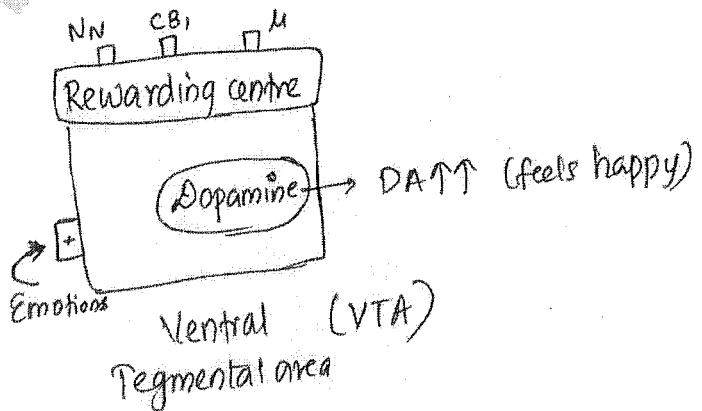 NN CB₁ μ
Rewarding centre
Dopamine → DA↑↑ (feels happy)
+
Emotions
Ventral (VTA)
Tegmental area